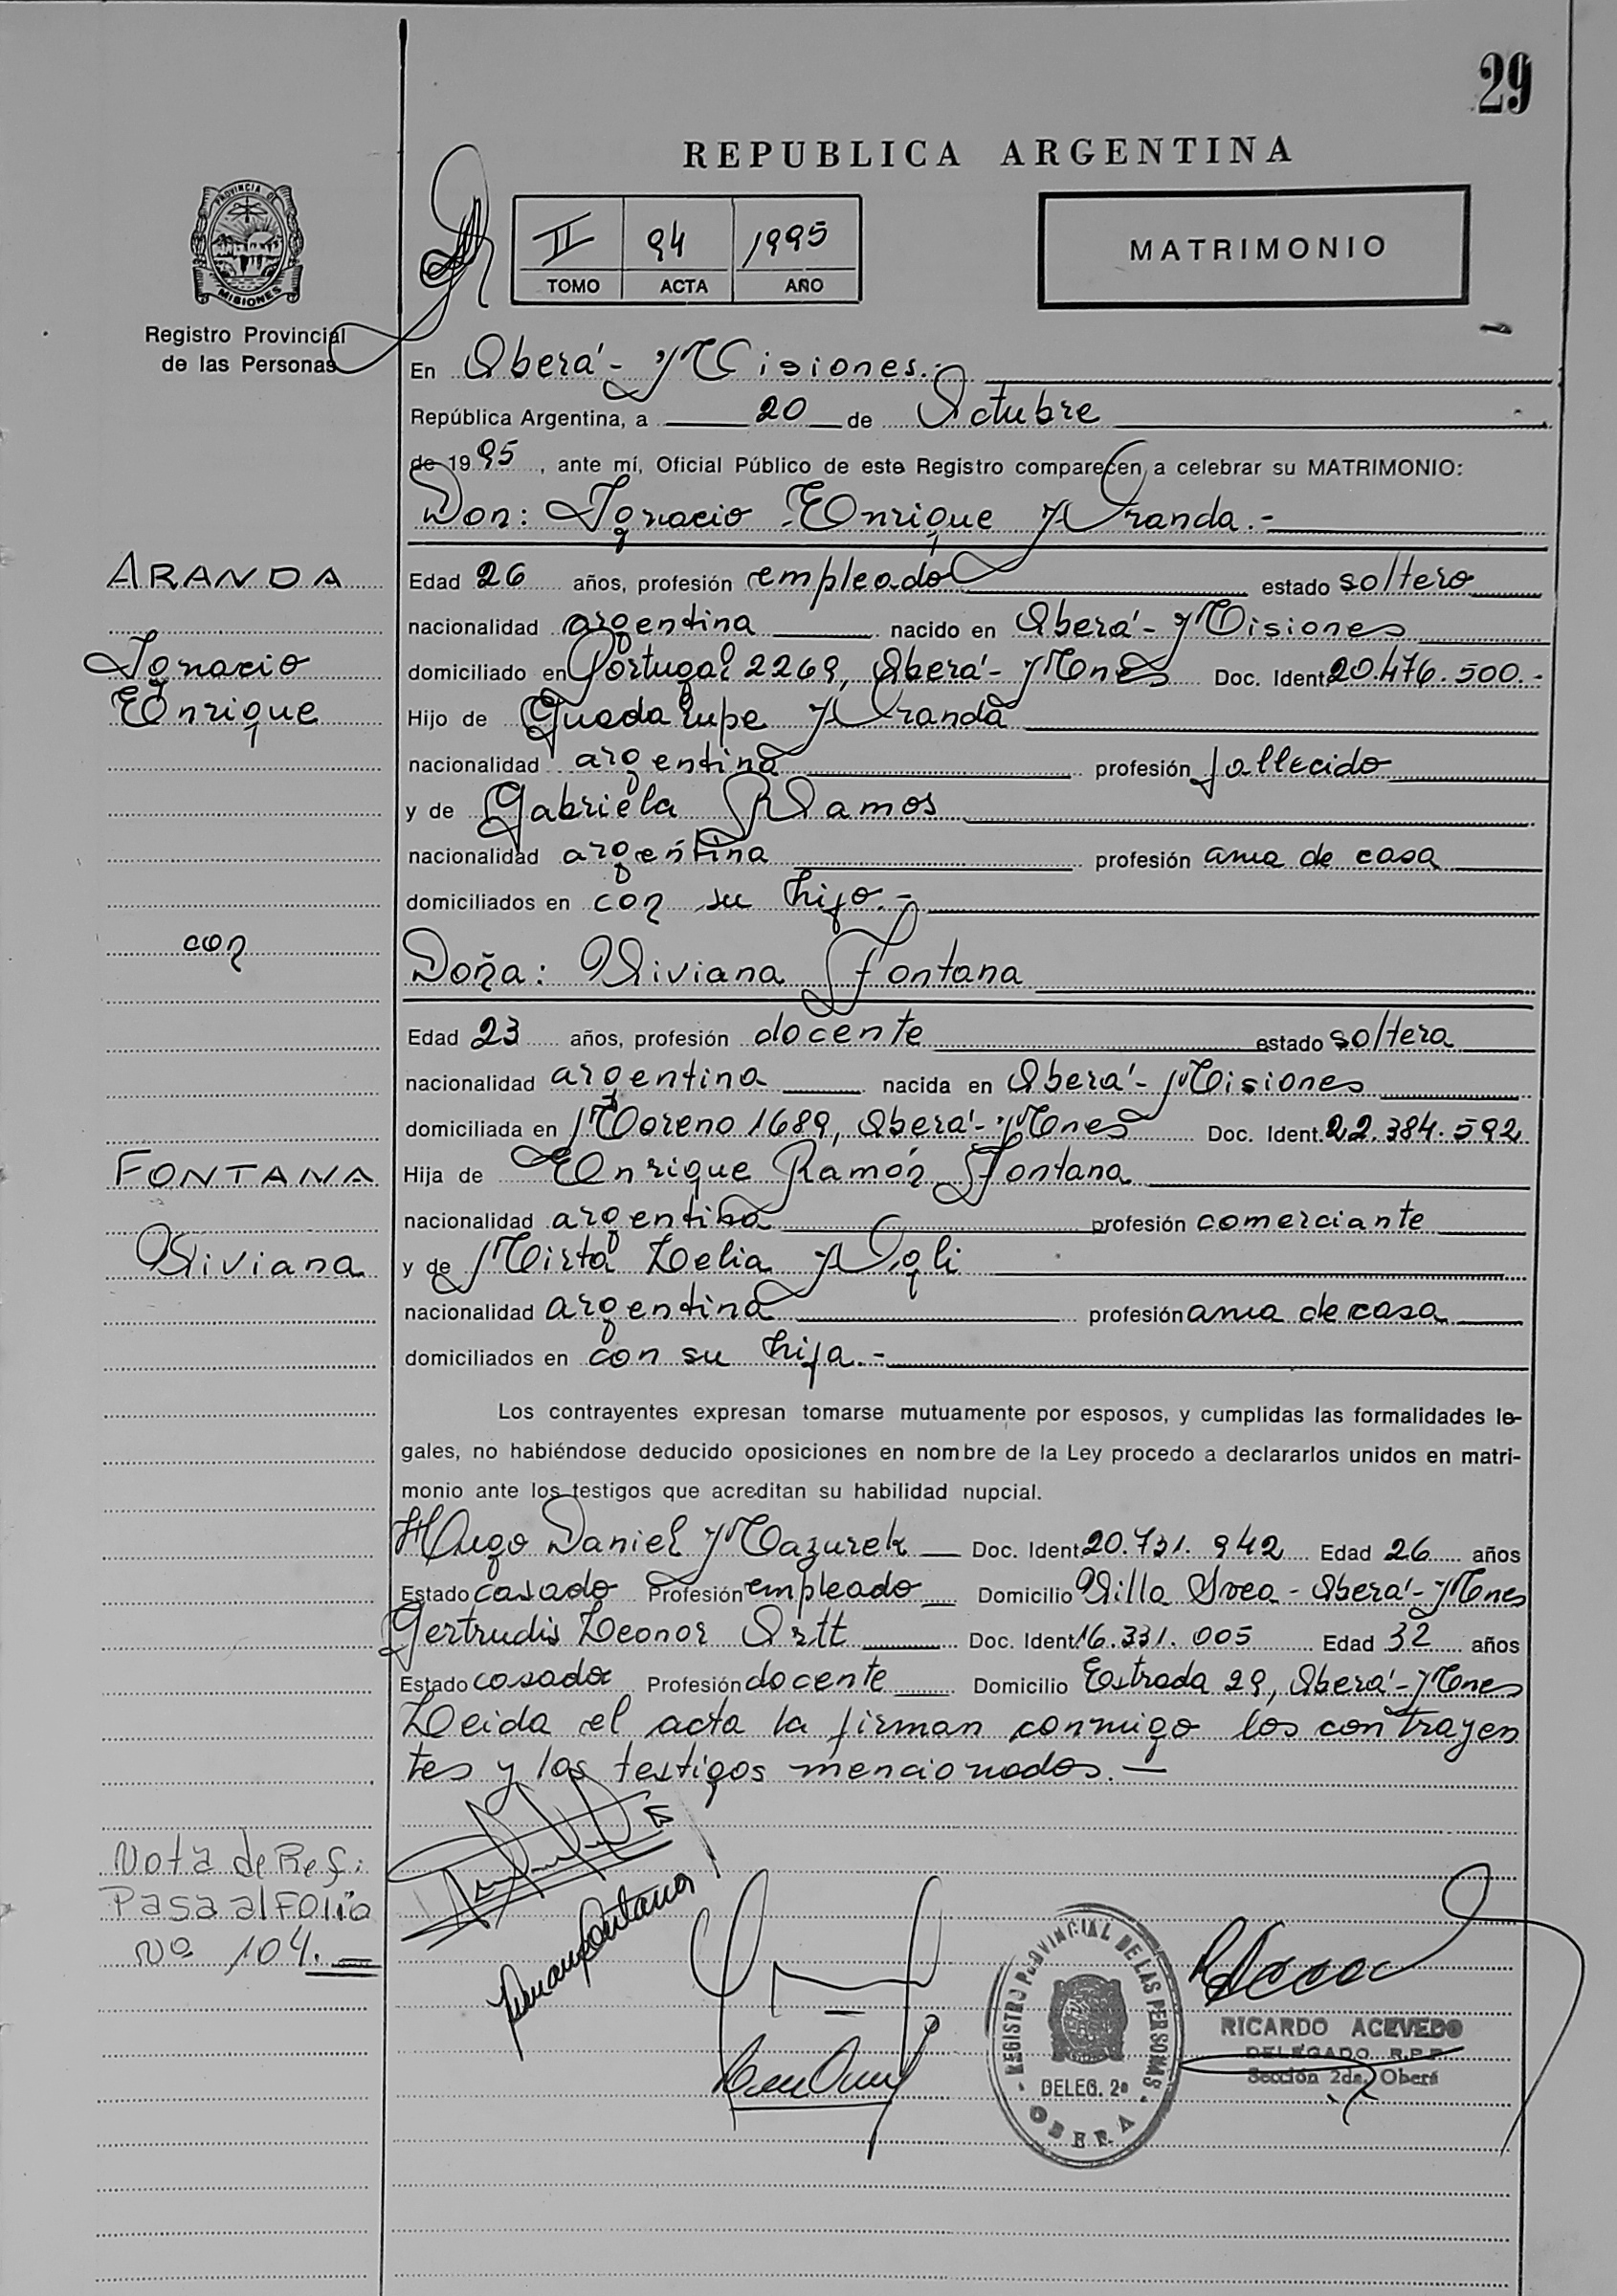 29
REPUBLICA ARGENTINA
PROVINCIA DE
MISIONES
Registro Provincial
de las Personas
II 94 1995
TOMO ACTA AÑO
MATRIMONIO
En Oberá - Misiones.-
República Argentina, a 20 de Octubre
de 1995, ante mí, Oficial Público de este Registro comparecen a celebrar su MATRIMONIO:
Don: Ignacio Enrique Aranda.-
ARANDA
Edad 26 años, profesión empleado estado soltero
nacionalidad argentina nacido en Oberá - Misiones
Ignacio
domiciliado en Portugal 2269, Oberá - Mnes Doc. Ident. 20.476.500.-
Enrique
Hijo de Guadalupe Aranda
nacionalidad argentina profesión fallecido
y de Gabriela Ramos
nacionalidad argentina profesión ama de casa
domiciliados en con su hijo.-
con
Doña: Viviana Fontana
Edad 23 años, profesión docente estado soltera
nacionalidad argentina nacida en Oberá - Misiones
domiciliada en Moreno 1689, Oberá - Mnes Doc. Ident. 22.384.592
FONTANA
Hija de Enrique Ramón Fontana
nacionalidad argentina profesión comerciante
Viviana
y de Mirta Lelia
nacionalidad argentina profesión ama de casa
domiciliados en con su hija.-
Los contrayentes expresan tomarse mutuamente por esposos, y cumplidas las formalidades le-
gales, no habiéndose deducido oposiciones en nombre de la Ley procedo a declararlos unidos en matri-
monio ante los testigos que acreditan su habilidad nupcial.
Hugo Daniel Mazurek Doc. Ident. 20.731.942 Edad 26 años
Estado casado Profesión empleado Domicilio Villa Svea - Oberá - Mnes
Gertrudis Leonor Doc. Ident. 16.331.005 Edad 32 años
Estado casada Profesión docente Domicilio Estrada 29, Oberá - Mnes
Leida el acta la firman conmigo los contrayen
tes y los testigos mencionados.-
Nota de Ref:
Pasa al Folio
Nº 104.
REGISTRO PROVINCIAL DE LAS PERSONAS
DELEG. 2ª
OBERA
RICARDO ACEVEDO
DELEGADO R.P.P.
Sección 2da. Oberá